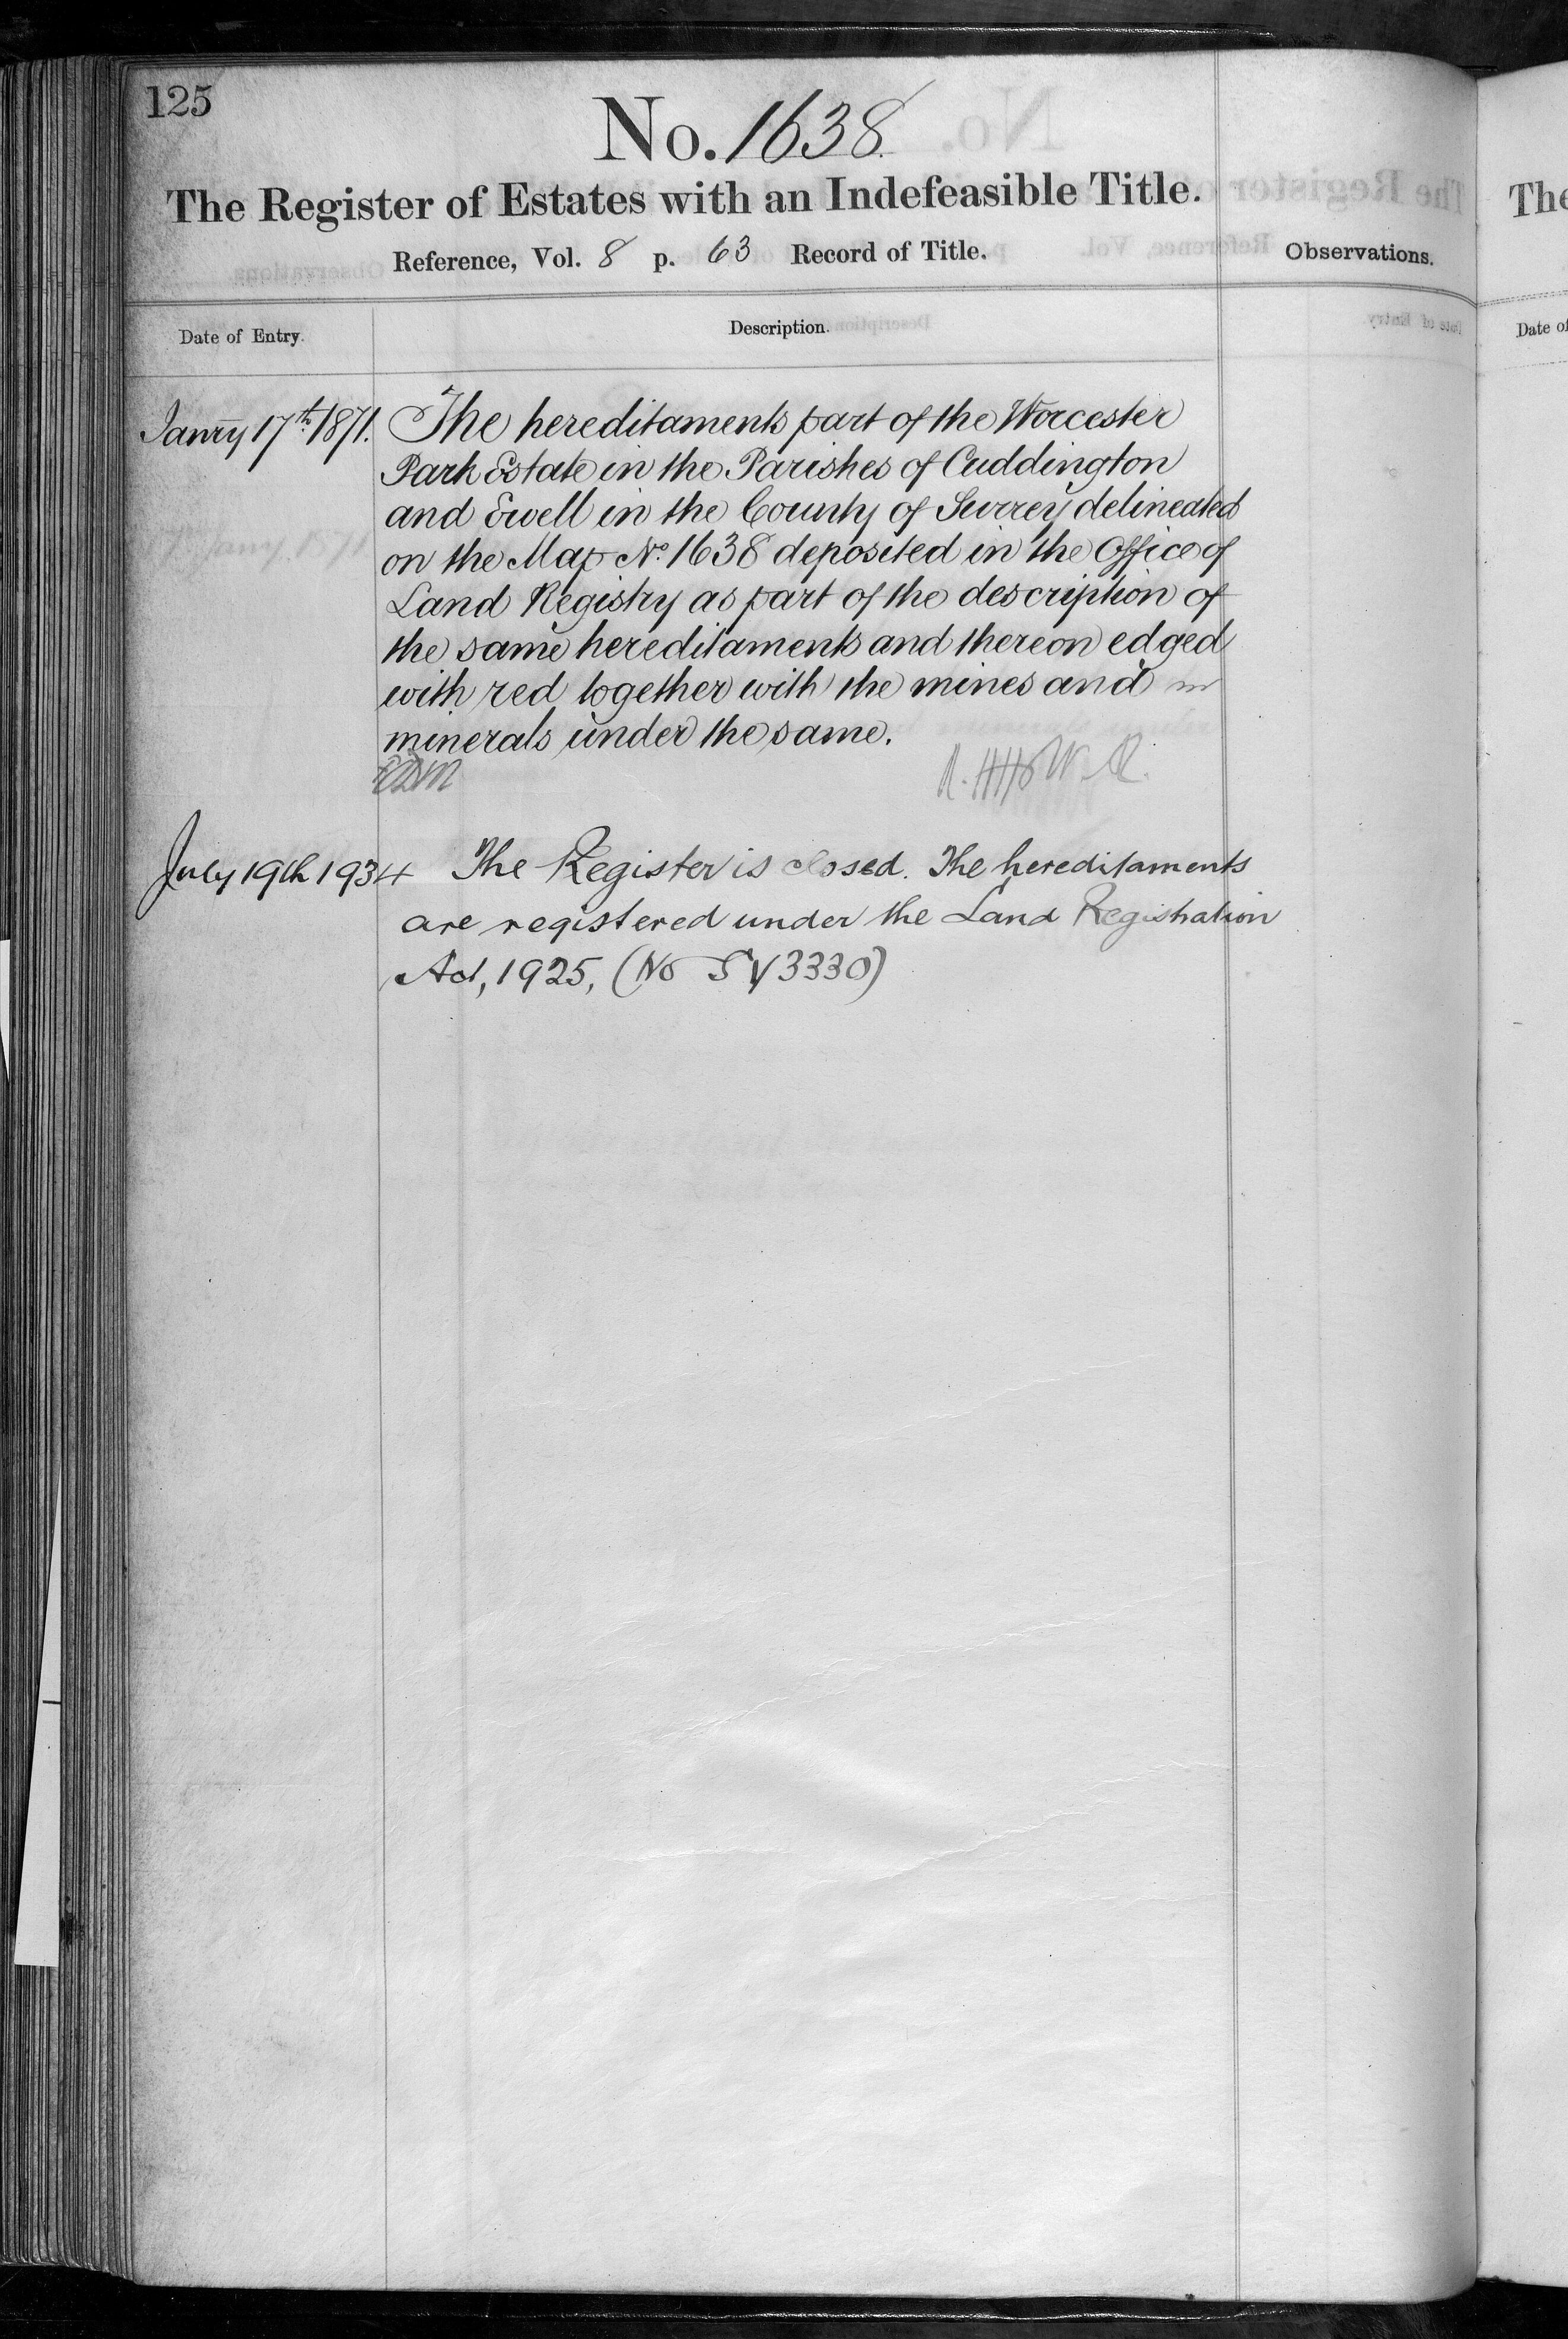 125
No. 1638.
The Register of Estates with an Indefeasible Title.
Reference, Vol. 8 p. 63 Record of Title.
Observations.
Date of Entry.
Description.
Janry 17th 1871.
The hereditaments part of the Worcester
Park Estate in the Parishes of Cuddington
and Ewell in the County of Surrey delineated
on the Map No. 1638 deposited in the Office of
Land Registry as part of the description of
the same hereditaments and thereon edged
with red together with the mines and
minerals under the same.
July 19th 1934
The Register is closed. The hereditaments
are registered under the Land Registration
Act, 1925, (No SY3330)
The
Date of